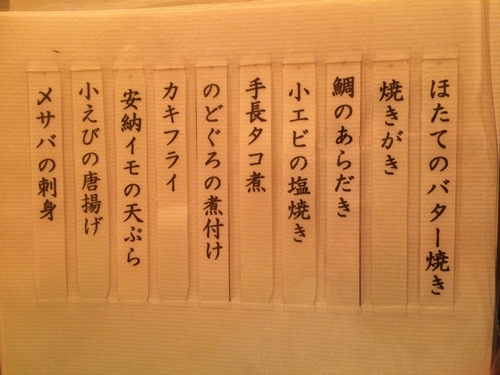 ほたてのバター焼き
焼きがき
鯛のあらだき
小エビの塩焼き
手長タコ煮
のどぐろの煮付け
カキフライ
安納イモの天ぷら
小えびの唐揚げ
メサバの刺身